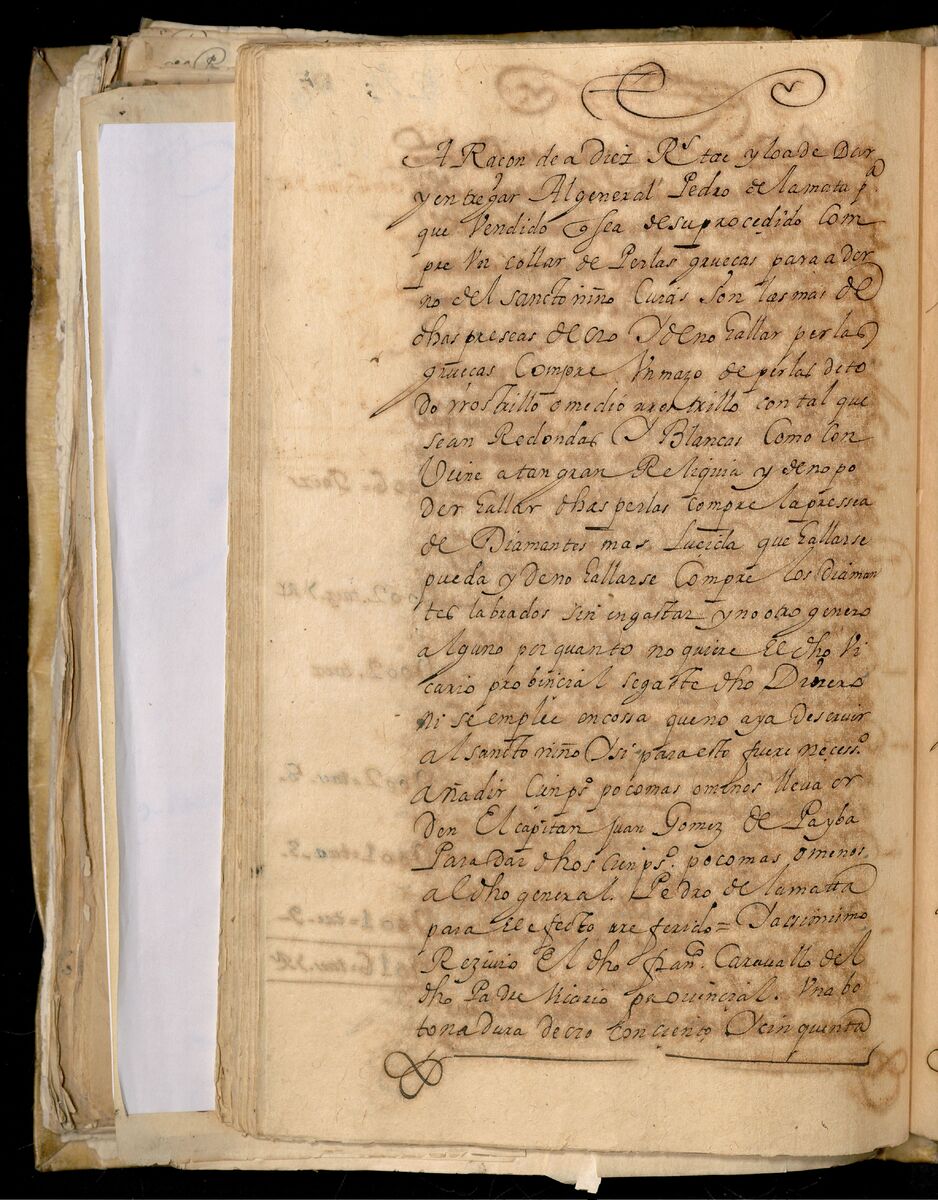 A Raçon de a Diez Rs tae y loa de Dar
y entregar Al general Pedro de la mata pa
que Vendido q sea de su procedido Com
pre Vn collar de Perlas gruecas para ador
no del sancto niño Cuias son las mas de
dhas preseas de oro Y de no hallar perlas
gruecas Compre Vn mazo de perlas de to
do rrostrillo o medio rrostrillo con tal que
sean Redondas Y Blancas Como Con
Viene a tan gran Reliquia y de no po
der hallar dhas perlas compre la pressea
de Diamantes mas Lucida que hallarse
pueda y de no hallarse Compre los Diaman
tes labrados sin engastar y no otro genero
alguno por quanto no quiere El dho Vi
cario probincial se gaste dho Dinero
ni se emplee en cossa que no aya de seruir
al sancto niño Y si para esto fuere necesso
añadir Cien ps poco mas o menos lleua or
den El capitan Juan Gomez de Payba
Para dar dhos Cien ps. poco mas o menos
al dho general. Pedro de la matta
para El efecto rreferido = Y assimismo
Reziuio El dho fran. Carauallo del
dho Padre Vicario prouincial. Vna bo
tonadura de oro con ciento Y cinquenta